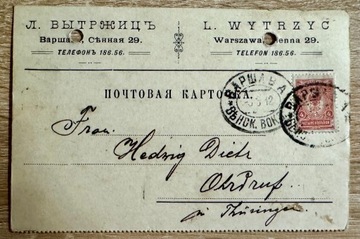 Л. ВЫТРЖИЦЪ
Варшава, Сѣнная 29.
ТЕЛЕФОНЪ 186.56.
L. WYTRZYC
Warszawa, Sienna 29.
TELEFON 186.56.
ПОЧТОВАЯ КАРТОЧКА
ВАРШАВА
ВѢНСК. ВОК.
ВАРШ
Frau
Hedwig Dietz
Ohrdruf
in Thüringen